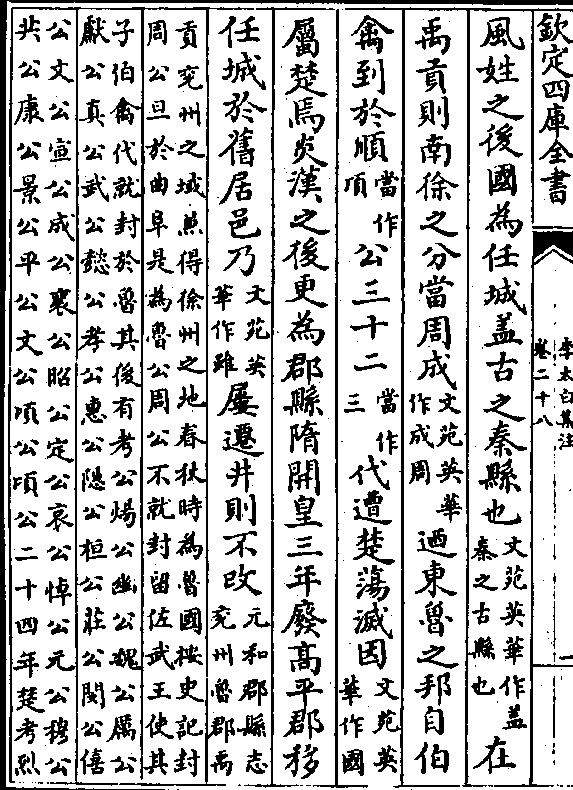 欽定四庫全書
李太白集注
卷二十八
一
風姓之後國為任城盖古之秦縣也文苑英華作盖秦之古縣也在
禹貢則南徐之分當周成文苑英華作成周迺東魯之邦自伯
禽到於順當作項公三十二當作三代遭楚蕩滅因文苑英華作國
屬楚焉炎漢之後更為郡縣隋開皇三年廢高平郡移
任城於舊居邑乃文苑英華作雖屢遷井則不改元和郡縣志兖州魯郡禹
貢兖州之域兼得徐州之地春秋時為魯國按史記封
周公旦於曲阜是為魯公周公不就封留佐武王使其
子伯禽代就封於魯其後有考公煬公幽公魏公厲公
獻公真公武公懿公孝公惠公隱公桓公莊公閔公僖
公文公宣公成公襄公昭公定公哀公悼公元公穆公
共公康公景公平公文公頃公頃公二十四年楚考烈